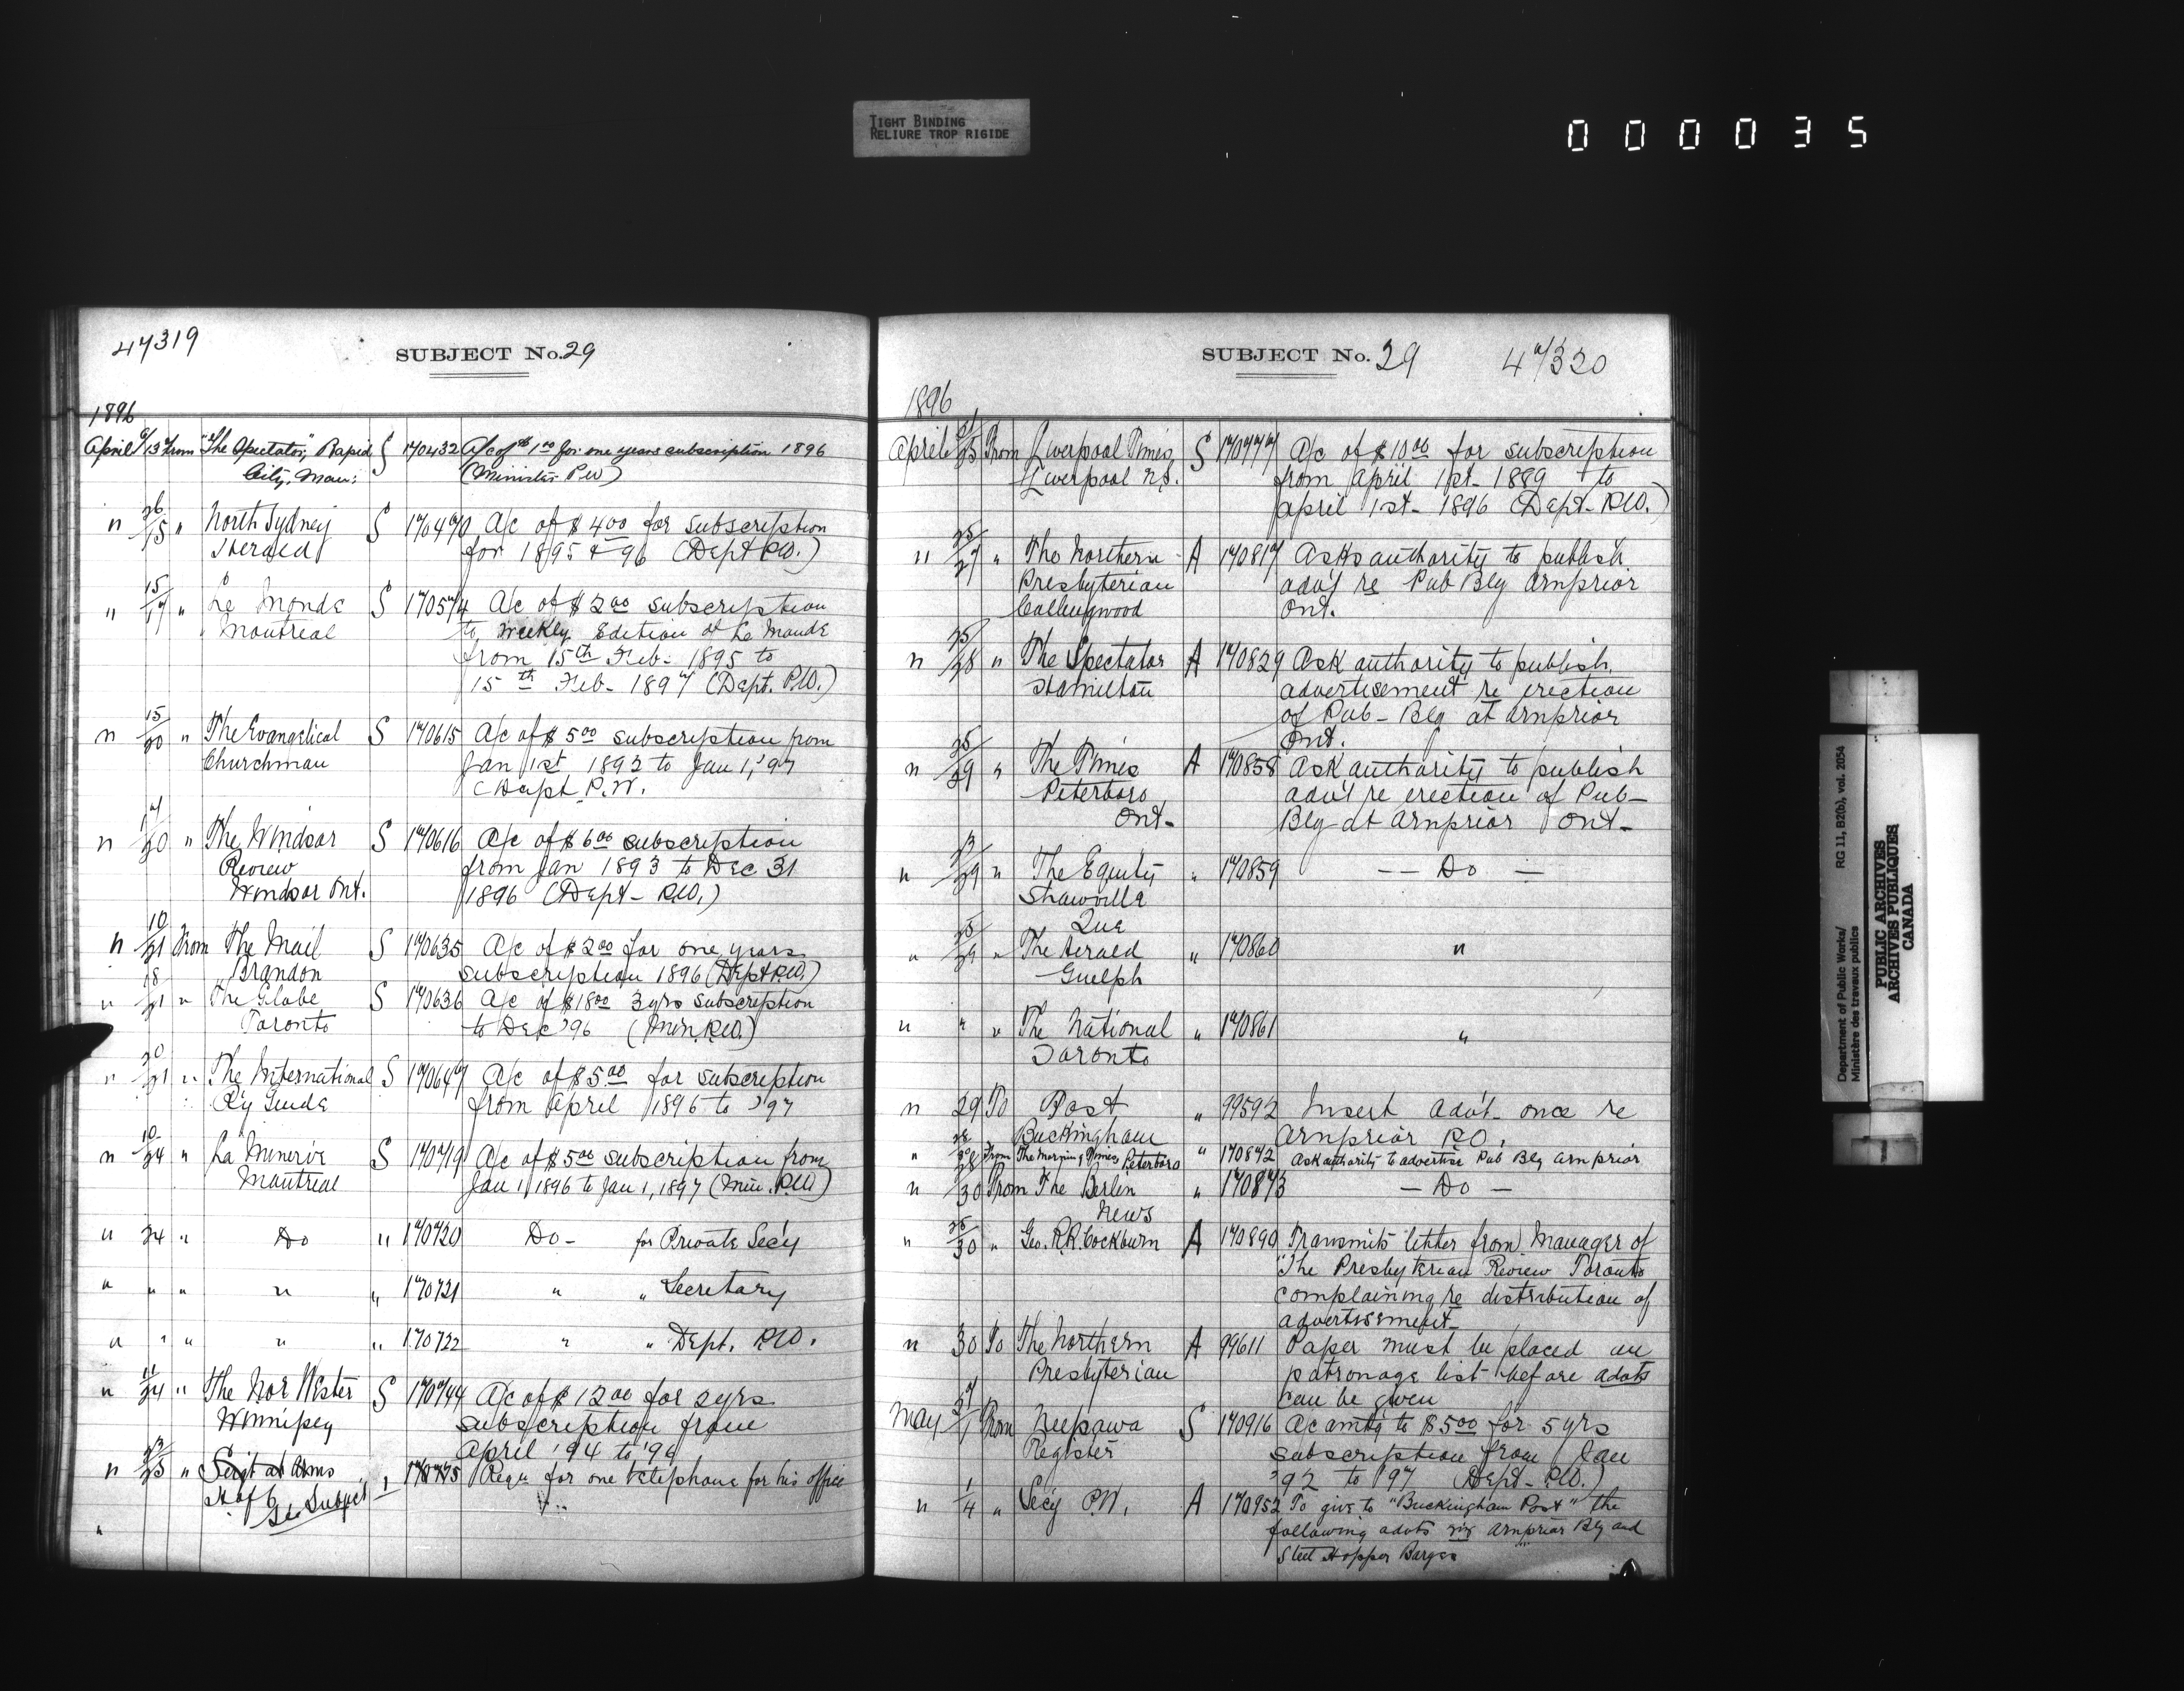 TIGHT BINDING
RELIURE TROP RIGIDE
000035
47319
SUBJECT No. 29
1896
April 9/13 From "The Spectator," Rapid S 170432 A/c of $1.00 for one years subscription 1896
City, Man: (Minister PW)
" 26/15 " North Sydney S 170470 A/c of $4.00 for subscription
Herald for 1895 & 96 (Dept P.W.)
" 15/17 " Le Monde S 170574 A/c of $2.00 subscription
Montreal to, Weekly Edition of Le Monde
from 15th Feb. 1895 to
15th Feb. 1897 (Dept. P.W.)
" 15/20 " The Evangelical S 170615 A/c of $5.00 subscription from
Churchman Jan 1st 1892 to Jan 1, '97
(Dept P.W.
" 17/20 " The Windsor S 170616 A/c of $6.00 subscription
Review from Jan 1893 to Dec 31
Windsor Ont. 1896 (Dept- P.W.)
" 10/21 From The Mail S 170635 A/c of $2.00 for one years
Brandon subscription 1896 (Dept P.W.)
" 18/21 " The Globe S 170636 A/c of $18.00 3 yrs subscription
Toronto to Dec '96 (Min. P.W.)
" 20/21 " The International S 170647 A/c of $5.00 for subscription
R'y Guide from April 1896 to '97
" 10/24 " La Minerve S 170719 A/c of $5.00 subscription from
Montreal Jan 1, 1896 to Jan 1, 1897 (Min. P.W)
" 24 " Do " 170720 Do- for Private Sec'y
" " " " " 170721 " " Secretary
" " " " " 170722 " " Dept. P.W.
" 11/24 " The Nor Wester S 170744 A/c of $12.00 for 2 yrs
Winnipeg subscription from
April '94 to '96
" 23/25 " Sergt at Arms " 170775 Requ for one telephone for his office
H of C
See Subject 1
"
SUBJECT No. 29
47320
1896
April 21/25 From Liverpool Times, S 170777 A/c of $10.00 for subscription
Liverpool N.S. from April 1st- 1889 to
April 1st- 1896 (Dept- P.W.)
" 25/27 " The Northern A 170817 Asks authority to publish
Presbyterian adv't re Pub Blg Arnprior
Collingwood Ont.
" 25/28 " The Spectator A 170829 Ask authority to publish
Hamilton advertisement re erection
of Pub- Blg at Arnprior
Ont.
" 25/29 " The Times A 170858 Ask authority to publish
Peterboro adv't re erection of Pub-
Ont- Blg at Arnprior Ont-
" 23/29 " The Equity " 170859 — Do —
Shawville
Que
" 25/29 " The Herald " 170860 "
Guelph
" " " The National " 170861 "
Toronto
" 29 To Post " 99592 Insert adv't- once re
Buckingham Arnprior P.O.
" 28/28 From The Morning Times Peterboro " 170872 Ask authority to advertise Pub Blg Arnprior
" 30 From The Berlin " 170873 — Do —
News
" 25/30 " Geo. R.R. Cockburn A 170890 Transmits letter from Manager of
"The Presbyterian Review Toronto
complaining re distribution of
advertisement-
" 30 To The Northern A 99611 Paper must be placed on
Presbyterian patronage list before advts
can be given
May 27/1 From Neepawa S 170916 Ac amtg to $5.00 for 5 yrs
Register subscription from Jan
'92 to '97 (Dept- P.W.)
" 1/4 " Sec'y P.W. A 170952 To give to "Buckingham Post" the
following advts viz Arnprior Blg and
Steel Hopper Barges
Department of Public Works/ RG 11, B2(b), vol. 2054
Ministère des travaux publics
PUBLIC ARCHIVES
ARCHIVES PUBLIQUES
CANADA